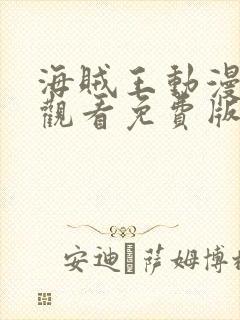 海賊王動漫
觀看免費版
安迪·薩姆博